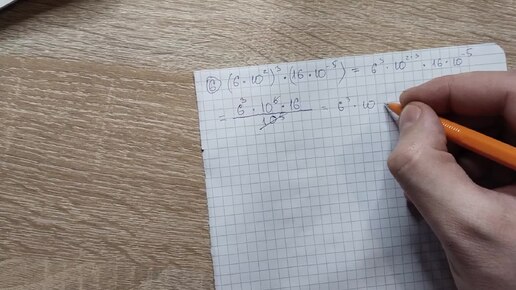 ⑥ (6·10²)³·(16·10⁻⁵) = 6³·10²·³·16·10⁻⁵
= 6³·10⁶·16 / 10⁵ = 6³·10